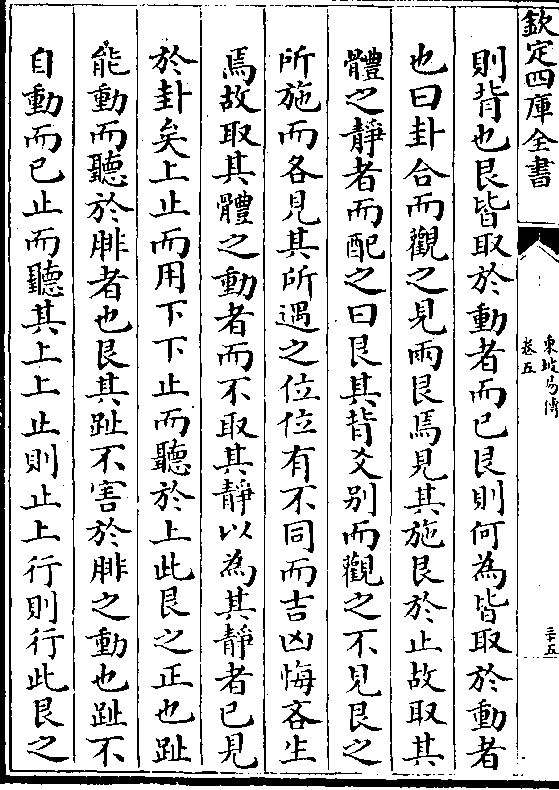 欽定四庫全書
東坡易傳
卷五
二十五
則背也艮皆取於動者而已艮則何為皆取於動者
也曰卦合而觀之見兩艮焉見其施艮於止故取其
體之靜者而配之曰艮其背爻别而觀之不見艮之
所施而各見其所遇之位位有不同而吉凶悔吝生
焉故取其體之動者而不取其靜以為其靜者已見
於卦矣上止而用下下止而聽於上此艮之正也趾
能動而聽於腓者也艮其趾不害於腓之動也趾不
自動而已止而聽其上上止則止上行則行此艮之